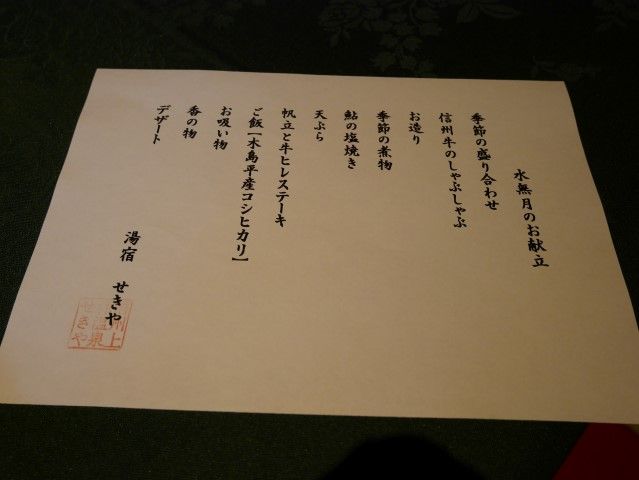 水無月のお献立
季節の盛り合わせ
信州牛のしゃぶしゃぶ
お造り
季節の煮物
鮎の塩焼き
天ぷら
帆立と牛ヒレステーキ
ご飯[木島平産コシヒカリ]
お吸い物
香の物
デザート
湯宿 せきや
上
温泉
せきや